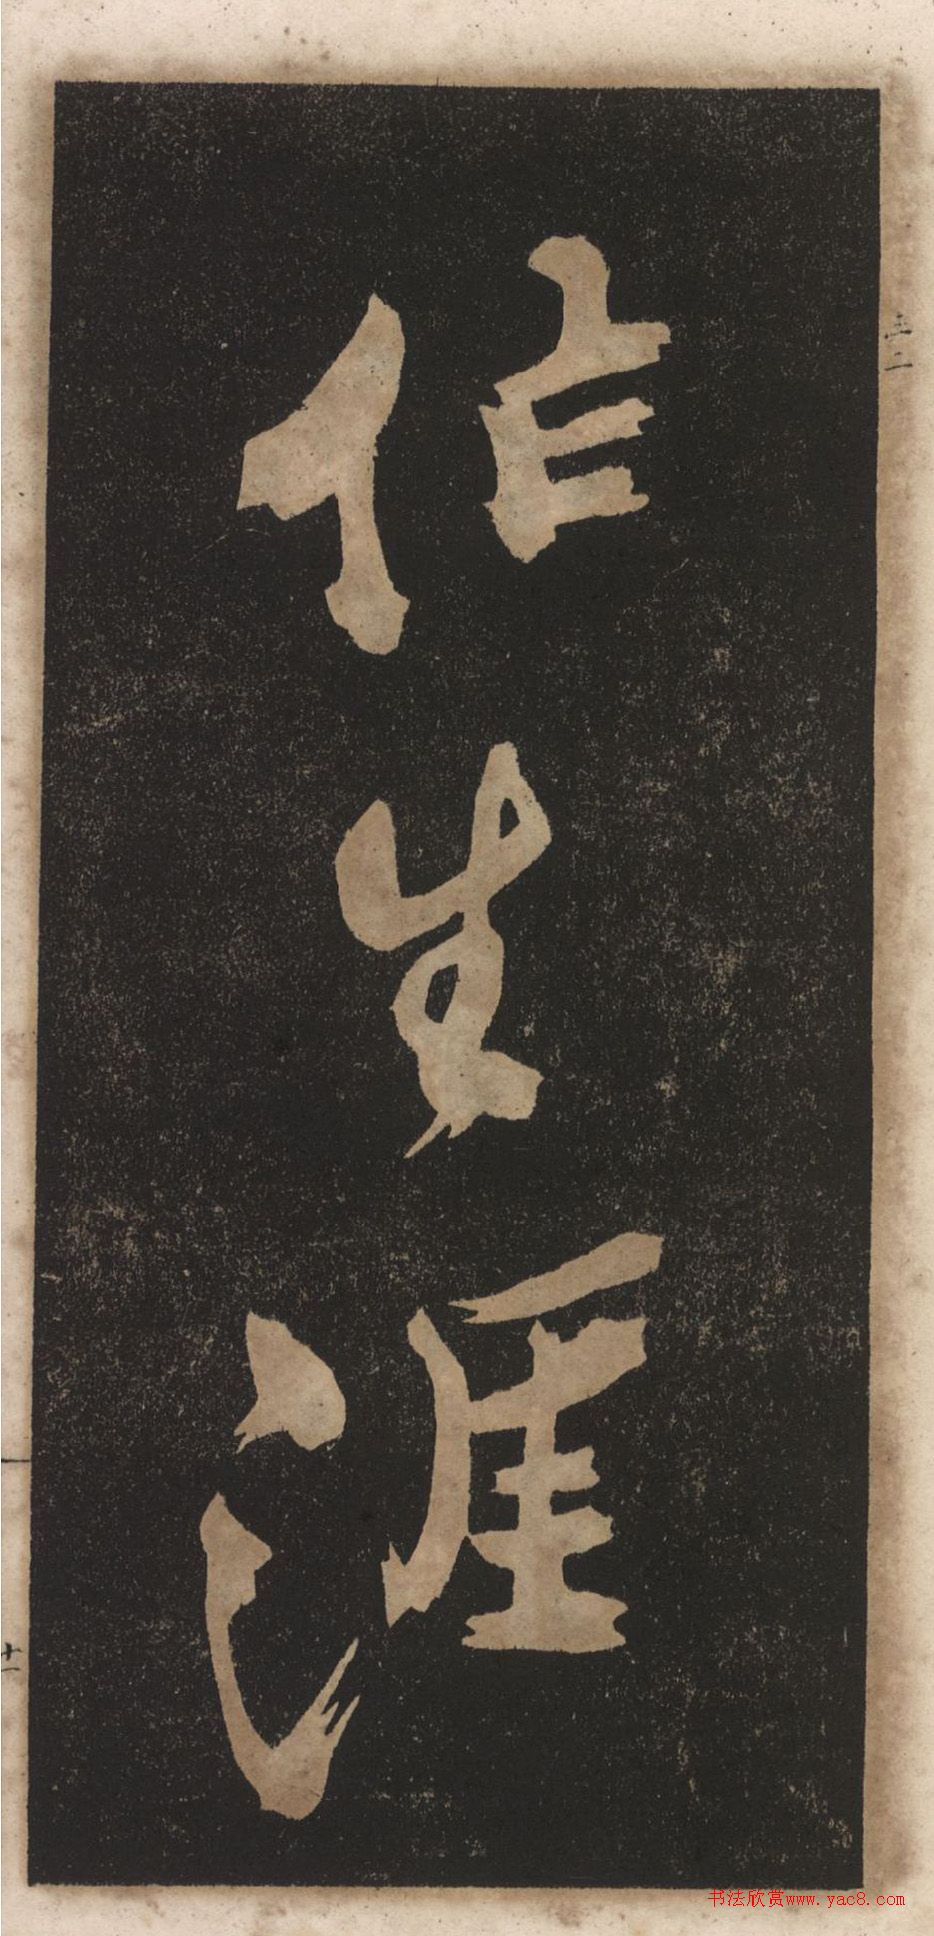 信生涯
三二
十一
书法欣赏www.yac8.com